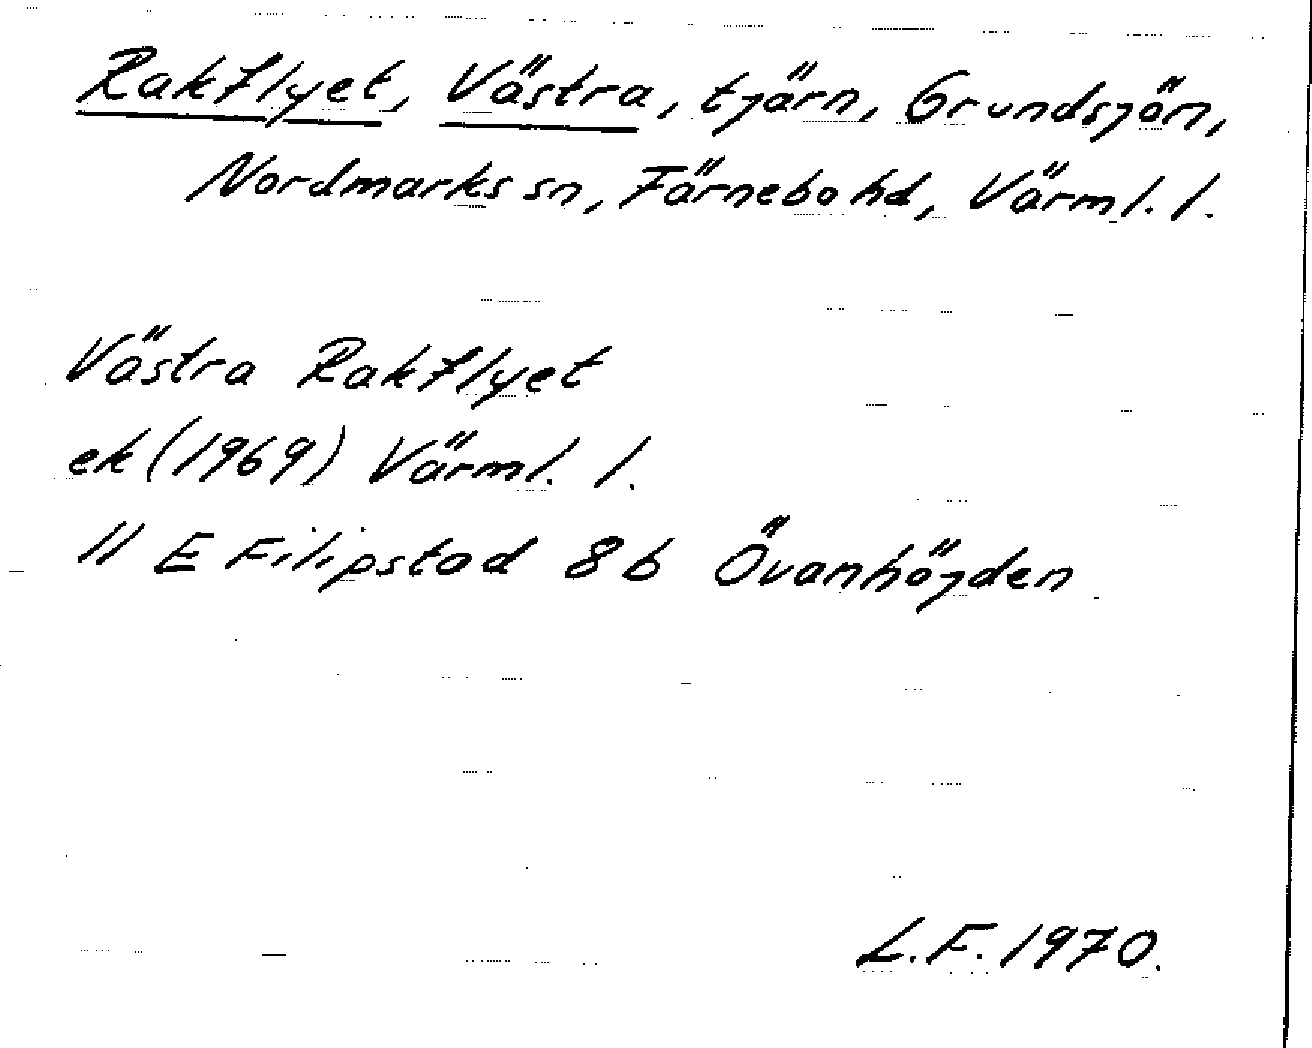 Rakflyet, Västra, tjärn, Grundsjön,
Nordmarks sn, Färnebo hd, Värml. l.
Västra Rakflyet
ek (1969) Värml. l.
11 E Filipstad 8 b Övanhöjden
L.F. 1970.